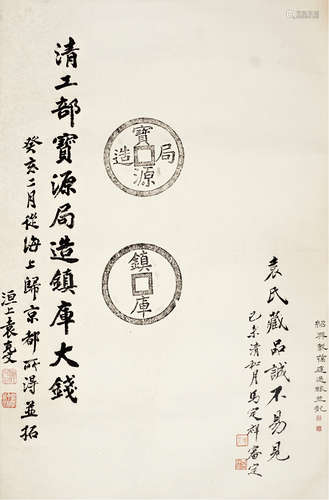 袁氏藏品誠不易見
己未清和月馬定祥審定
寶源局造
鎮庫
清工部寶源局造鎮庫大錢
癸亥二月從海上歸京都所得並拓
洹上袁克文